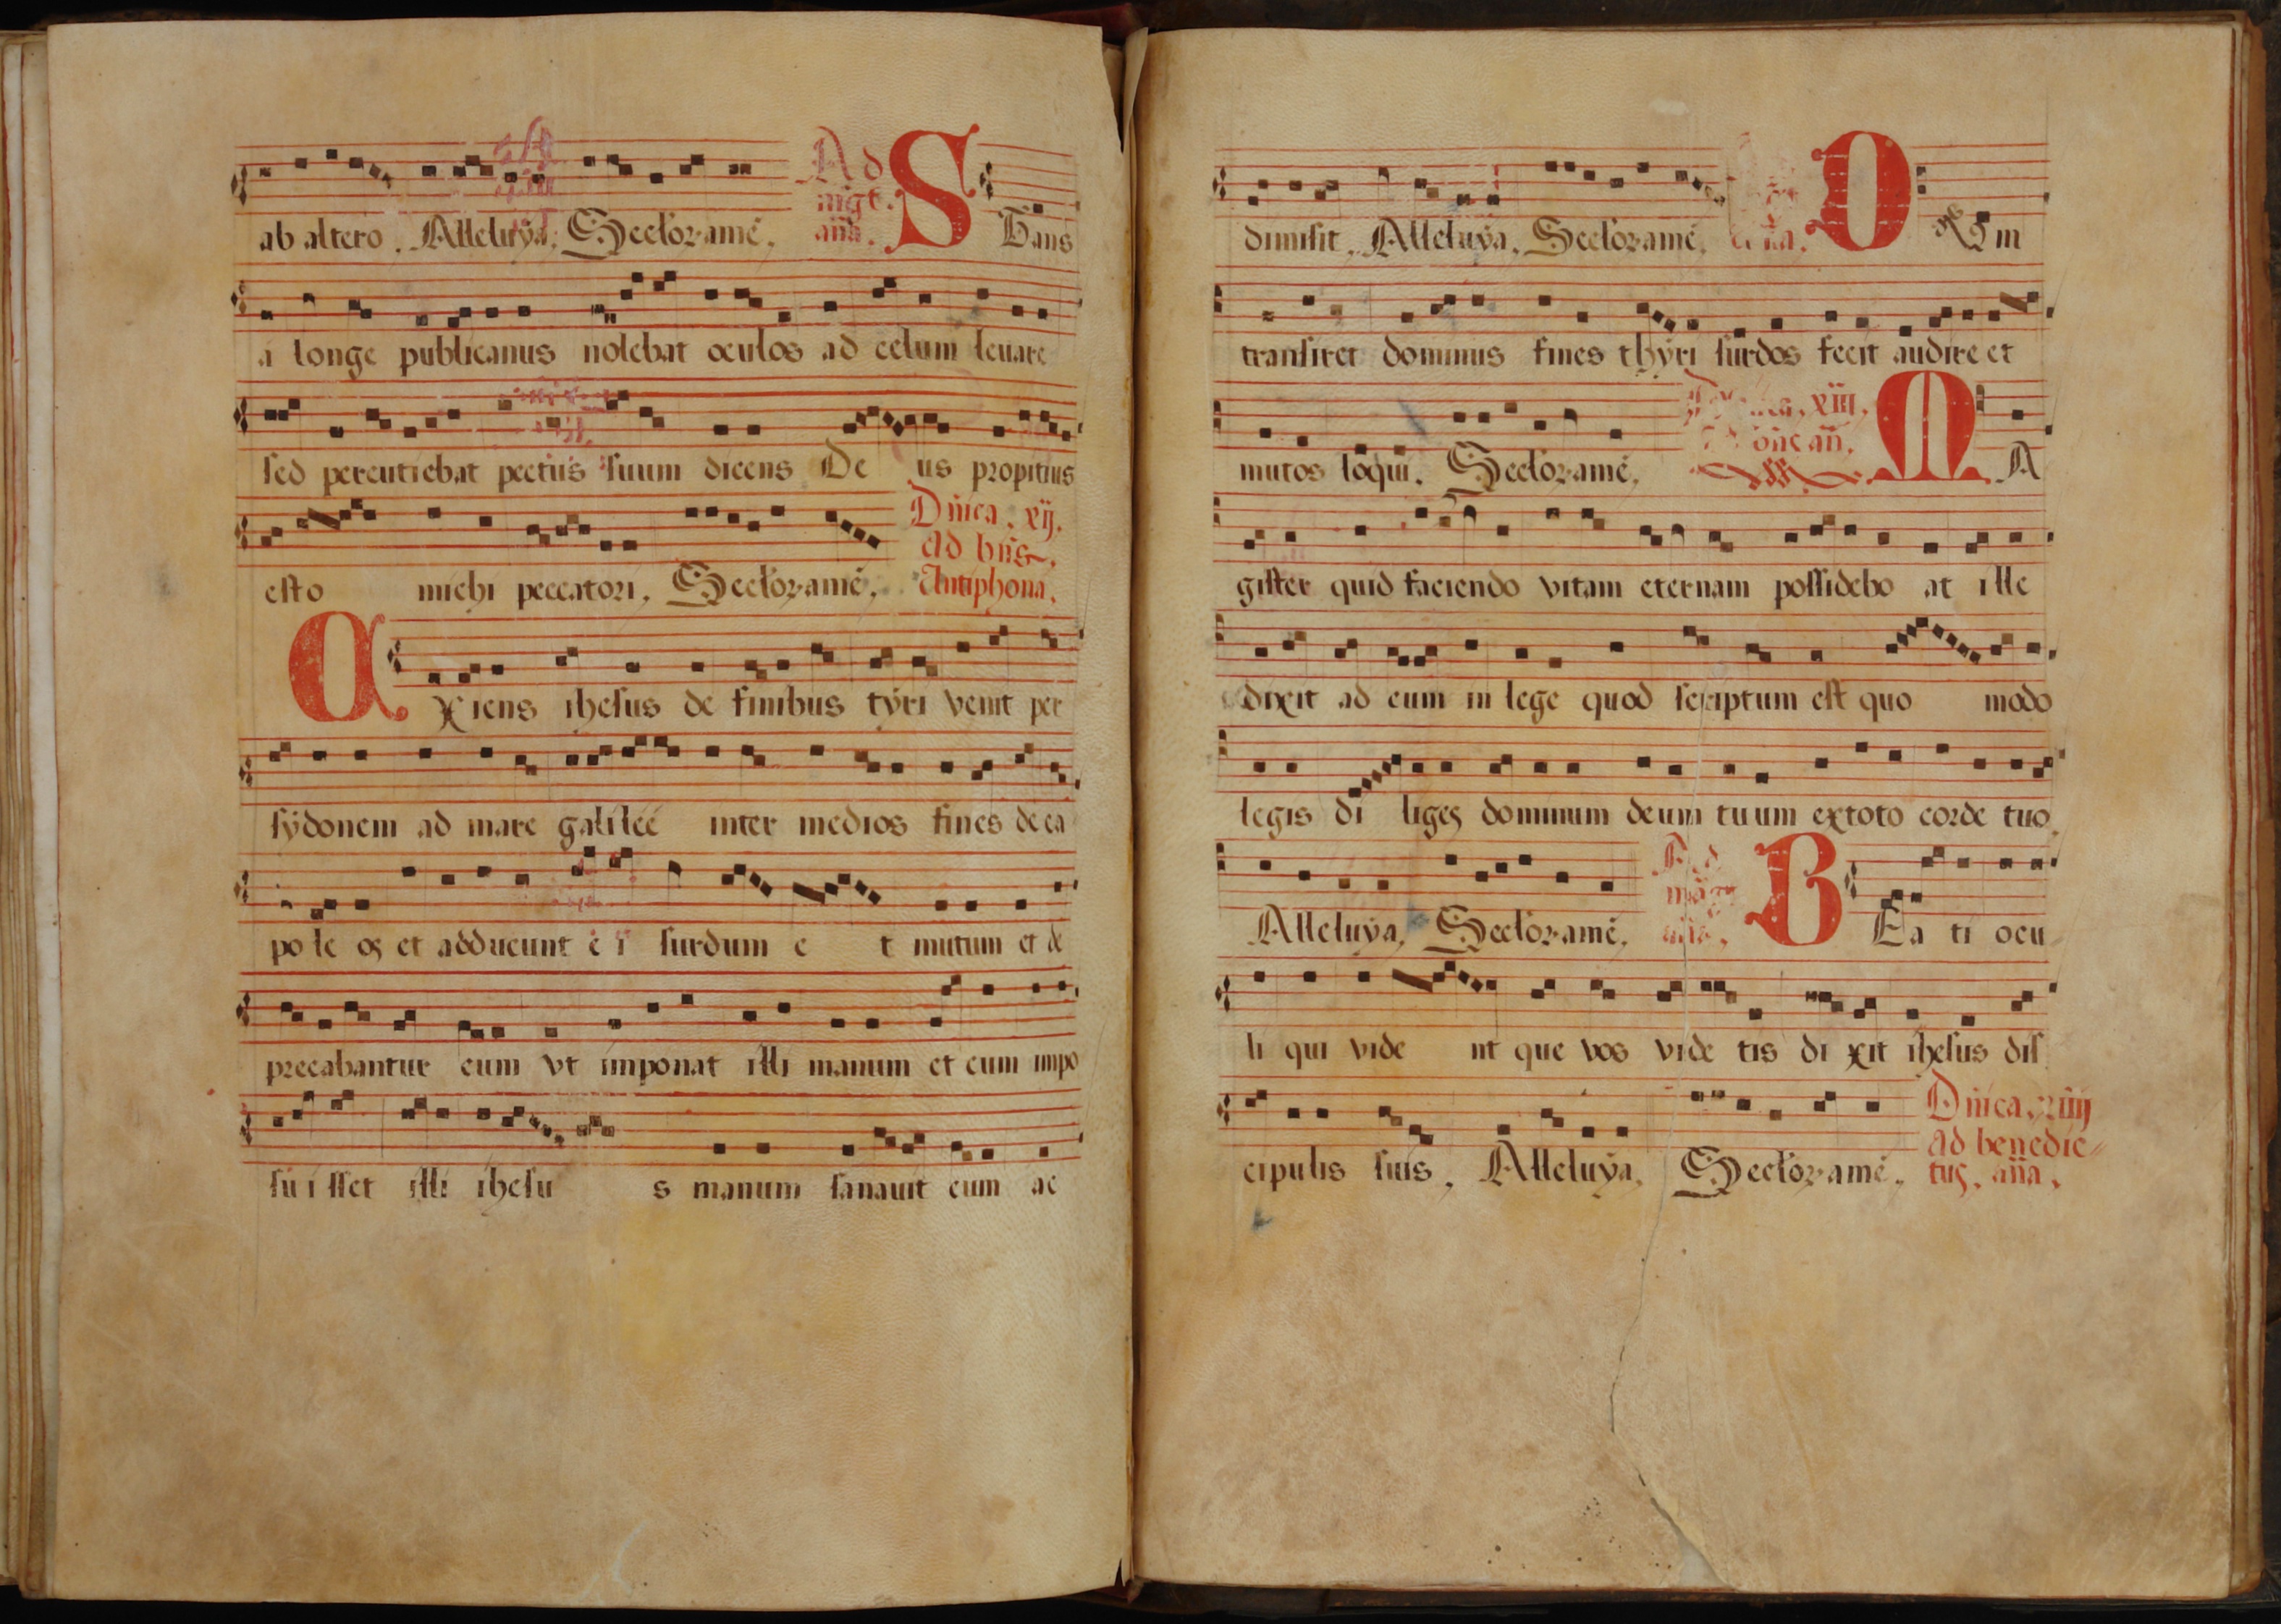 ab altero. Alleluÿa. Seculoꝝ amē. Ad
mgt.
aña. S Tans
a longe publicanus nolebat oculos ad celum leuare
sed percutiebat pectus suum dicens De us propitius
esto michi peccatori. Seculoꝝ amē. Dñica. xij.
ad bñs.
Antiphona.
E Xiens ihesus de finibus tÿri venit per
sÿdonem ad mare galileē inter medios fines de ca
po le os et adducunt e i surdum e t mutum et de
precabantur eum vt imponat illi manum et cum impo
su i sset illi ihesu s manum sanauit eum ac
dimisit. Alleluÿa. Seculoꝝ amē. aña. D Vm
transiret dominus fines thÿri surdos fecit audire et
mutos loqui. Seculoꝝ amē. xiij.
añ. M A
gister quid faciendo vitam eternam possidebo at ille
dixit ad eum in lege quod scriptum est quo modo
legis di liges dominum deum tuum ex toto corde tuo.
Alleluÿa. Seculoꝝ amē. Ad
aña. B Ea ti ocu
li qui vide nt que vos vide tis di xit ihesus dis
cipulis suis. Alleluÿa. Seculoꝝ amē. Dñica. xiiij
ad benedic
tus. aña.